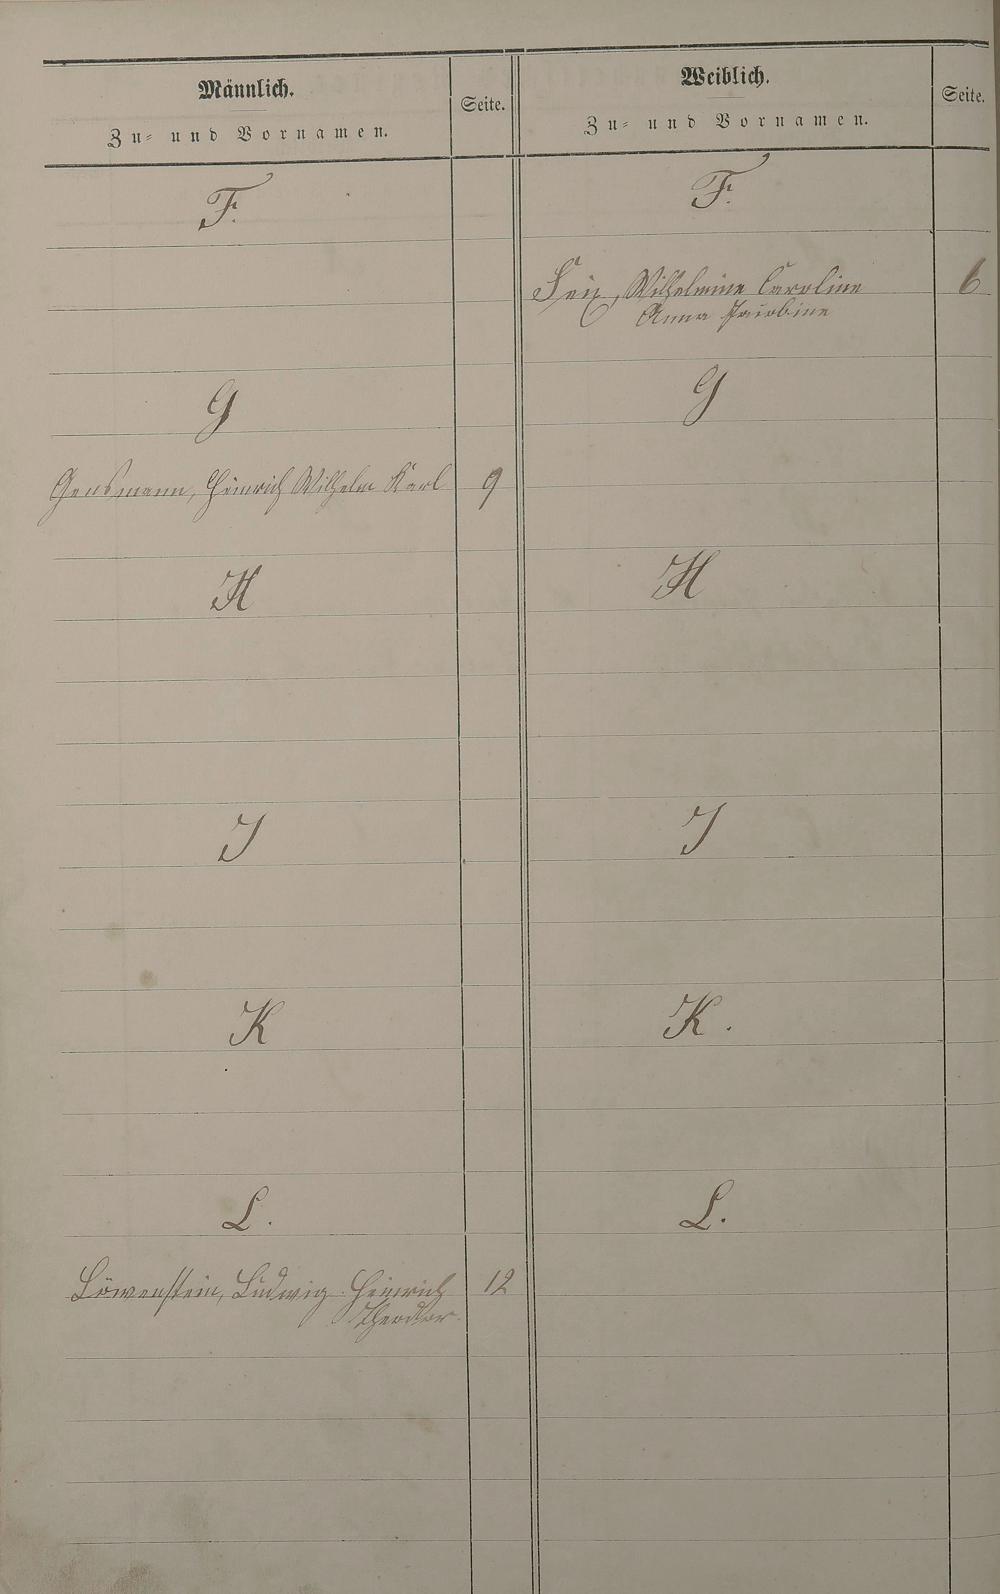 Männlich.
Zu- und Vornamen.
Seite.
Weiblich.
Zu- und Vornamen.
Seite.
F.
F.
Wilhelmine Caroline
6
Anna Jacobine
G
G
Gensmann, Heinrich Wilhelm Karl
9
H
H
J
J
K
K.
L.
L.
Löwenstein, Ludwig Heinrich
12
Theodor.